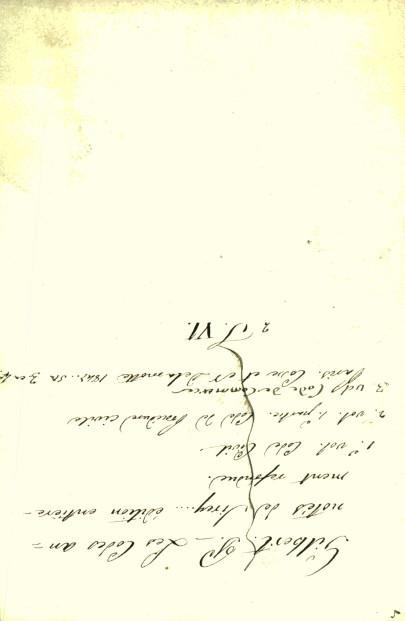 Gilbert. P. _ Les Codes an =
notés de Sirey... édition entière =
ment refondue.
1° vol. Code Civil.
2. vol. 1. partie. Code de Procédure civile
3. vol. Code de Commerce
Paris. Cosse et N. Delamotte 1847... in
2 J. VI.